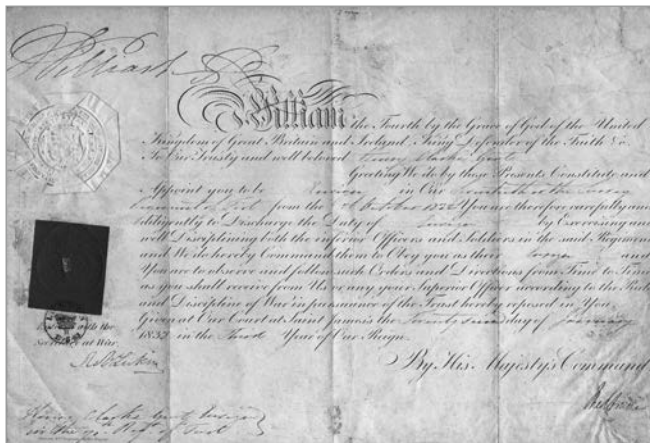 William
William the Fourth by the Grace of God of the United
Kingdom of Great Britain and Ireland, King Defender of the Faith &c.
To Our Trusty and well beloved Henry Clarke Gent
Greeting We do by these Presents Constitute and
Appoint you to be Ensign in Our
Regiment of Foot from the October You are therefore carefully and
diligently to Discharge the Duty of Ensign by Exercising and
well Disciplining both the inferior Officers and Soldiers in the said Regiment
and We do hereby Command them to Obey you as their Ensign and
You are to observe and follow such Orders and Directions from Time to Time
as you shall receive from Us or any your Superior Officer according to the Rules
and Discipline of War in pursuance of the Trust hereby reposed in You
Given at Our Court at Saint James's the day of January
183 in the Third Year of Our Reign.
Entered with the
Secretary at War
By His Majesty's Command
Henry Clarke Gent, Ensign
in the Regt. of Foot